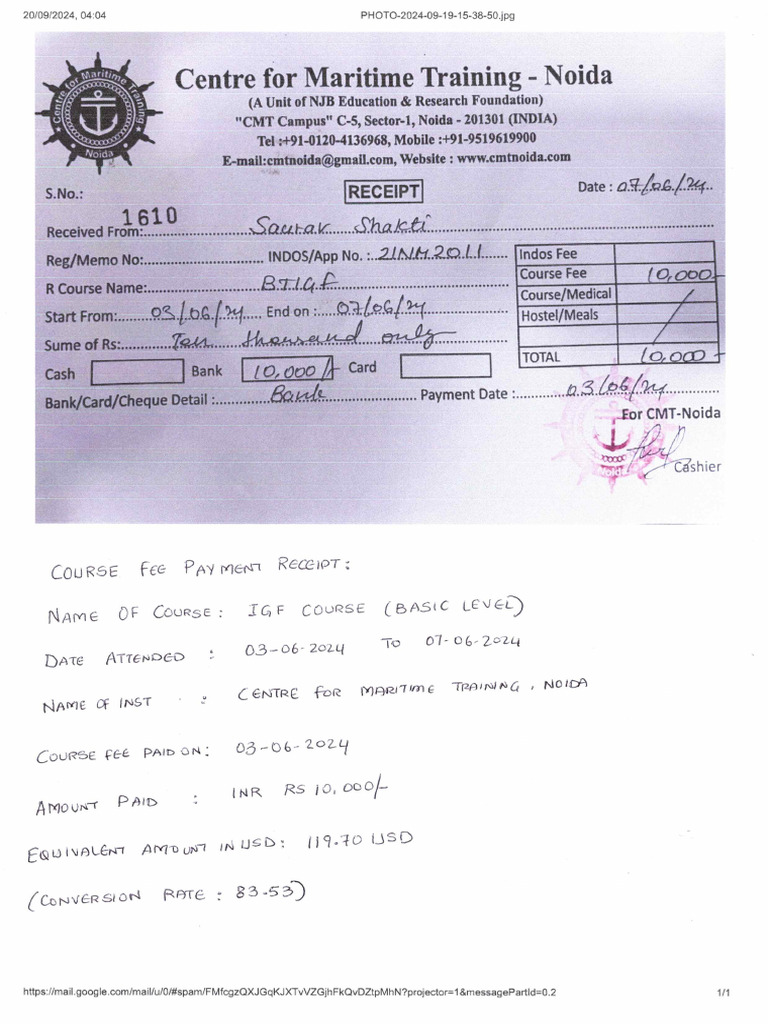 20/09/2024, 04:04 PHOTO-2024-09-19-15-38-50.jpg
Centre for Maritime Training
Noida
Centre for Maritime Training - Noida
(A Unit of NJB Education & Research Foundation)
"CMT Campus" C-5, Sector-1, Noida - 201301 (INDIA)
Tel :+91-0120-4136968, Mobile :+91-9519619900
E-mail:cmtnoida@gmail.com, Website : www.cmtnoida.com
S.No.: RECEIPT Date : 07/06/24
1610
Received From: Saurav Shakti
Reg/Memo No: INDOS/App No. : 21NM2011
R Course Name: BTIGF
Start From: 03/06/24 End on : 07/06/24
Sume of Rs: Ten thousand only
Indos Fee
Course Fee 10,000
Course/Medical
Hostel/Meals
TOTAL 10,000
Cash Bank 10,000/- Card
Bank/Card/Cheque Detail : Bank Payment Date : 03/06/24
For CMT-Noida
Noida
Cashier
COURSE FEE PAYMENT RECEIPT:
NAME OF COURSE: IGF COURSE (BASIC LEVEL)
DATE ATTENDED : 03-06-2024 TO 07-06-2024
NAME OF INST : CENTRE FOR MARITIME TRAINING, NOIDA
COURSE FEE PAID ON: 03-06-2024
AMOUNT PAID : INR RS 10,000/-
EQUIVALENT AMOUNT IN USD: 119.70 USD
(CONVERSION RATE : 83.53)
https://mail.google.com/mail/u/0/#spam/FMfcgzQXJGqKJXTvVZGjhFkQvDZtpMhN?projector=1&messagePartId=0.2 1/1